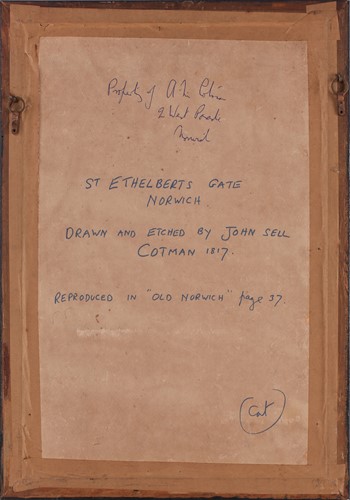 Property of
2 West Parade
Norwich
ST ETHELBERTS GATE
NORWICH.
DRAWN AND ETCHED BY JOHN SELL
COTMAN 1817.
REPRODUCED IN "OLD NORWICH" page 37.
Cat